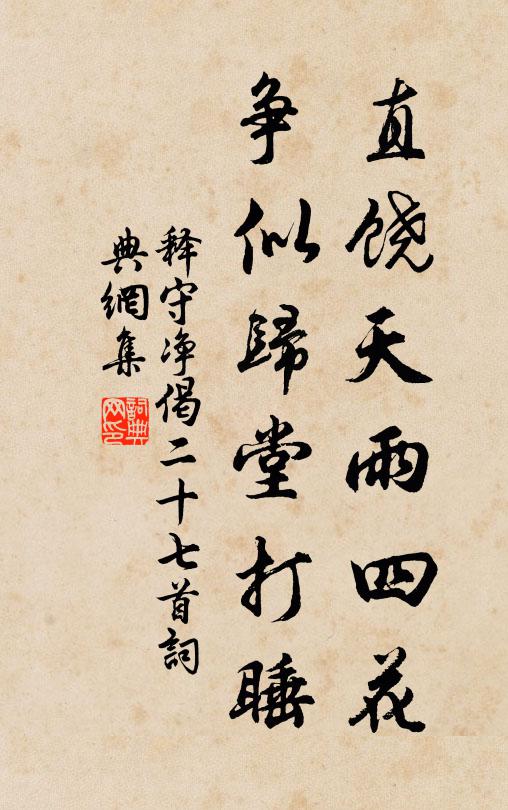 直饶天雨四花
争似歸堂打睡
释守净偈二十七首詞
典網集
詞典网印